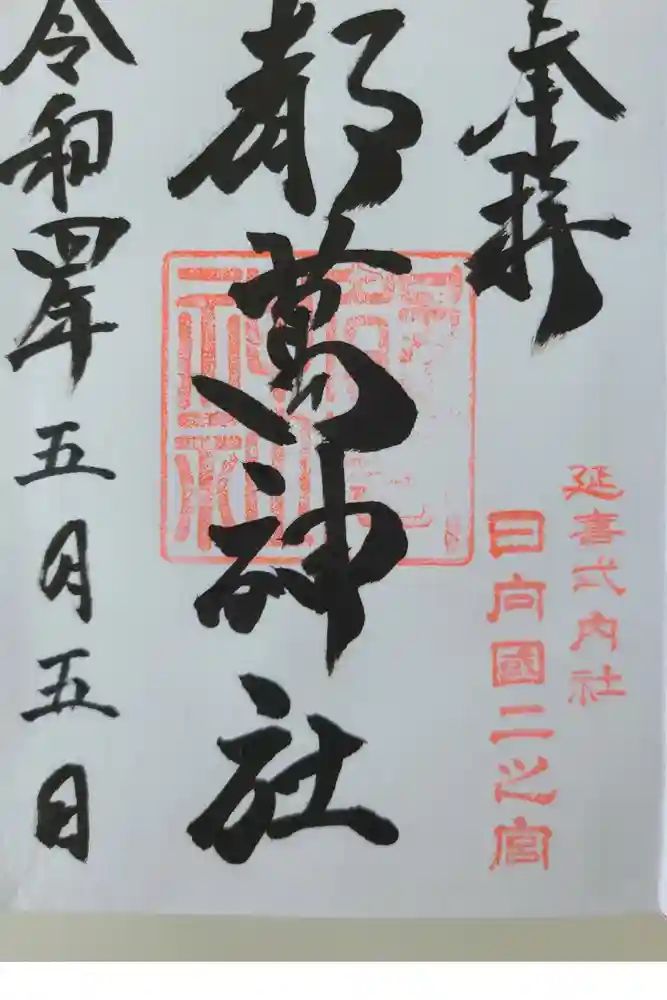 奉拝
延喜式内社
日向國二之宮
都萬神社
令和四年五月五日